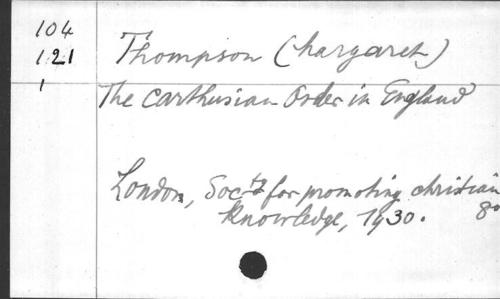 104
121
1
Thompson (Margaret)
The Carthusian Order in England
London, Socty for promoting christian
Knowledge, 1930. 8o